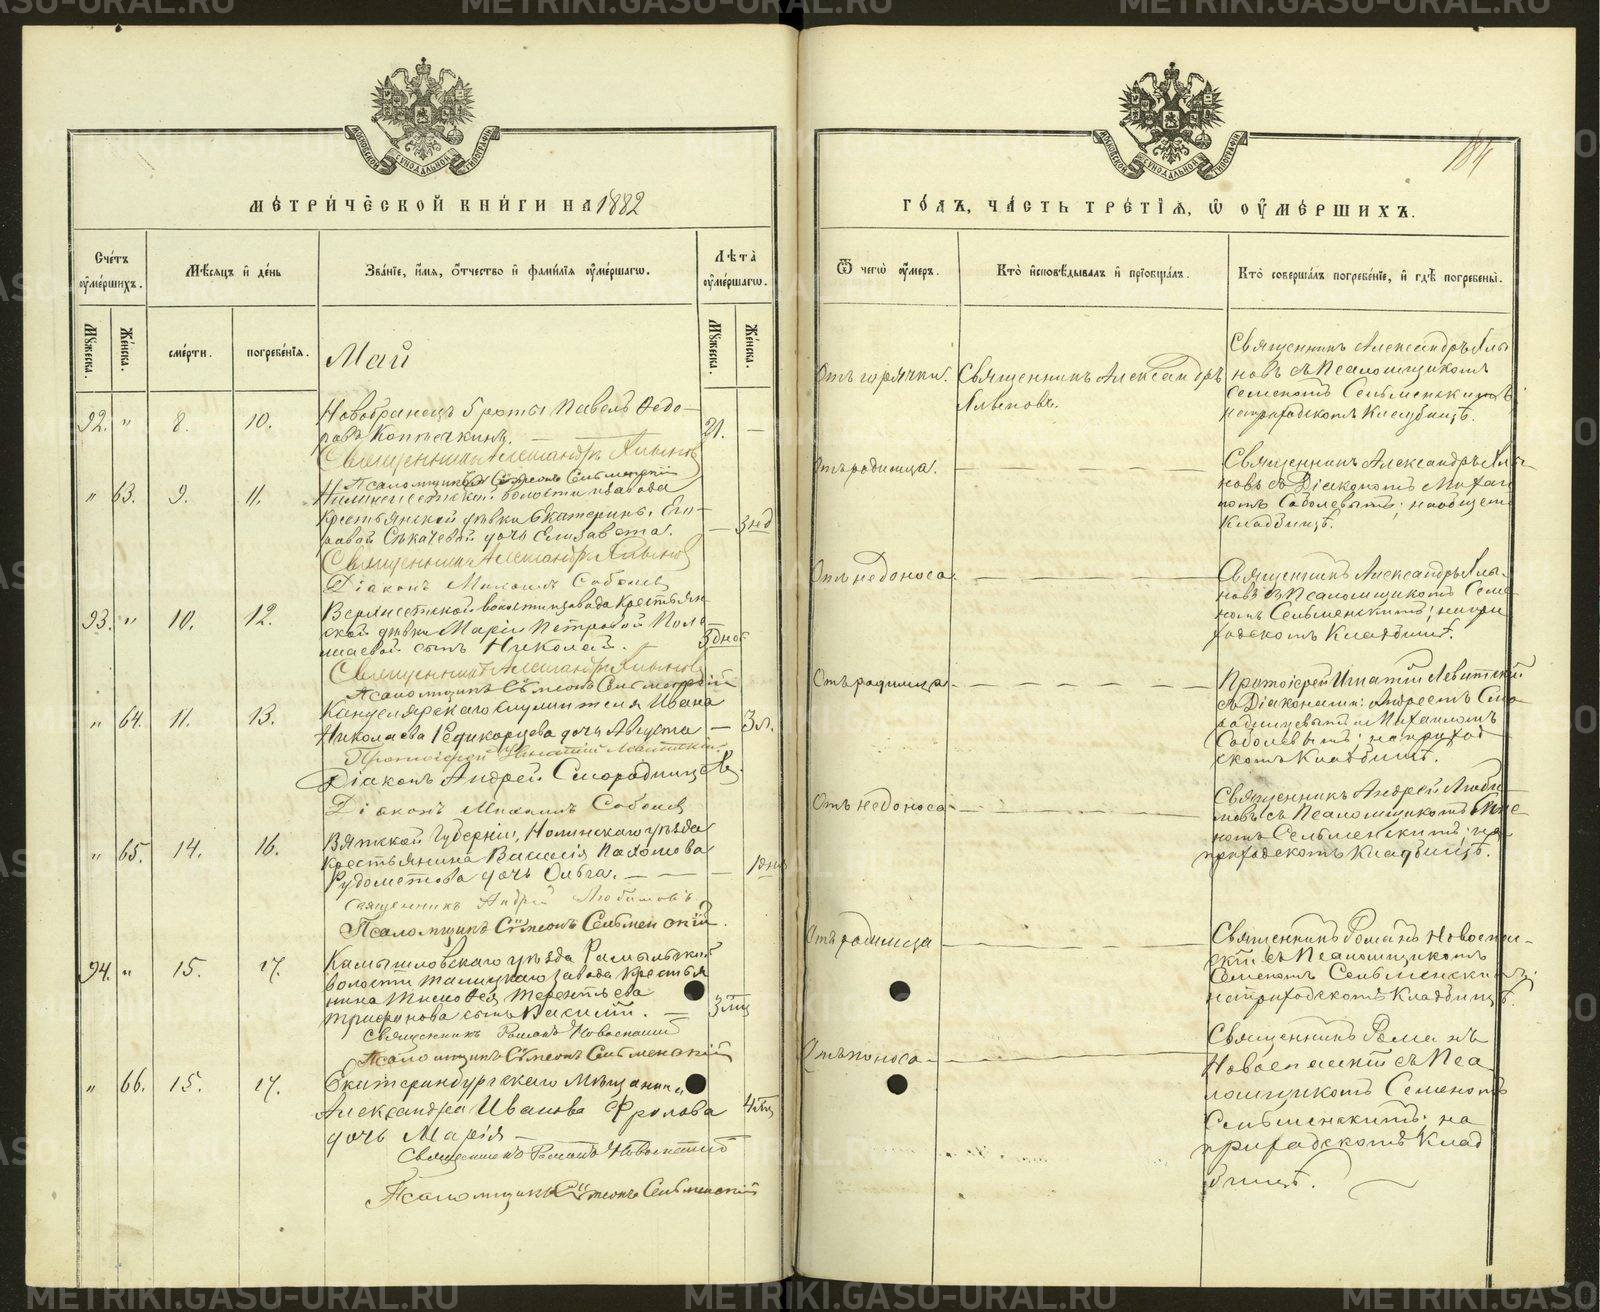 МЕТРИ́ЧЕСКОЙ КНИ́ГИ НА 1882
Сче́тъ ᲂу҆ме́ршихъ.
Мѣ́сяцъ и҆ де́нь
Зва́нїе, и҆́мя, ѻ҆́тчество и҆ фами́лїя ᲂу҆ме́ршагѡ.
Лѣта̀ ᲂу҆ме́ршагѡ.
Мꙋ́жеска.
Же́нска.
сме́рти.
погребе́нїя.
Мꙋ́жеска.
Же́нска.
Май
92. " 8. 10. Новобранецъ 5 роты Павелъ Ѳедо-
ровъ Копѣечкинъ. — 21. —
Священникъ Александръ
Псаломщикъ Сѵмеонъ Сельменскій
" 63. 9. 11. волости и завода
крестьянской дѣвки Екатерины Его-
ровой Сѣкачевой дочь Елизавета. — 3 нд
Священникъ Александръ
Діаконъ Михаилъ Соболевъ
93. " 10. 12. Верхисетской волости и завода крестьян
ской дѣвки Маріи Петровой
сынъ Николай. 5 дней
Священникъ Александръ
Псаломщикъ Сѵмеонъ Сельменскій
" 64. 11. 13. Канцелярскаго служителя Ивана
Николаева Редикорцева дочь Августа — 3 л.
Протоіерей Игнатій Левитскій
Діаконъ Андрей Смородинцевъ.
Діаконъ Михаилъ Соболевъ
" 65. 14. 16. Вятской Губерніи, Нолинскаго уѣзда
крестьянина Василія Пахомова
Рудометова дочь Ольга. — — — 1 день
Священникъ Андрей Любимовъ.
Псаломщикъ Сѵмеонъ Сельменскій.
94. " 15. 17. Камышловскаго уѣзда
волости Талицкаго завода крестья
нина Тимоѳея Терентьева
Трифонова сынъ Василій. — 3 мц
Священникъ Романъ Новоспаскій
Псаломщикъ Сѵмеонъ Сельменскій
" 66. 15. 17. Екатеринбургскаго Мѣщанина
Александра Иванова Фролова 4 мц
дочь Марія —
Священникъ Романъ Новоспаскій
Псаломщикъ Сѵмеонъ Сельменскій
184
ГО́ДЪ, ЧА́СТЬ ТРЕ́ТЇѦ, Ѡ҆ ОУ҆МЕ́РШИХЪ.
Ѿ чегѡ̀ ᲂу҆́меръ.
Кто̀ и҆сповѣ́дывалъ и҆ прїобща́лъ.
Кто̀ соверша́лъ погребе́нїе, и҆ гдѣ̀ погребены̀.
Отъ горячки. Священникъ Александръ
Священникъ Александръ
новъ съ Псаломщикомъ
Семеномъ Сельменскимъ
на приходскомъ Кладбищѣ.
Отъ родимца. — — — — Священникъ Александръ
новъ съ Діакономъ Михаи
ломъ Соболевымъ; на общемъ
Кладбищѣ.
Отъ недоноса. — — — — Священникъ Александръ
новъ съ Псаломщикомъ Семе
номъ Сельменскимъ; на при
ходскомъ Кладбищѣ.
Отъ родимца — — — — Протоіерей Игнатій Левитскій
съ Діаконами: Андреемъ Смо
родинцевымъ и Михаиломъ
Соболевымъ; на приход
скомъ Кладбищѣ.
Отъ недоноса — — — — Священникъ Андрей Люби
мовъ съ Псаломщикомъ Семе
номъ Сельменскимъ; на
приходскомъ Кладбищѣ.
Отъ родимца — — — — Священникъ Романъ Новоспас-
скій съ Псаломщикомъ
Семеномъ Сельменскимъ;
на приходскомъ Кладбищѣ.
Отъ поноса — — — — Священникъ Романъ
Новоспаскій съ Пса
ломщикомъ Семеномъ
Сельменскимъ; на
приходскомъ Клад
бищѣ.
METRIKI.GASO-URAL.RU